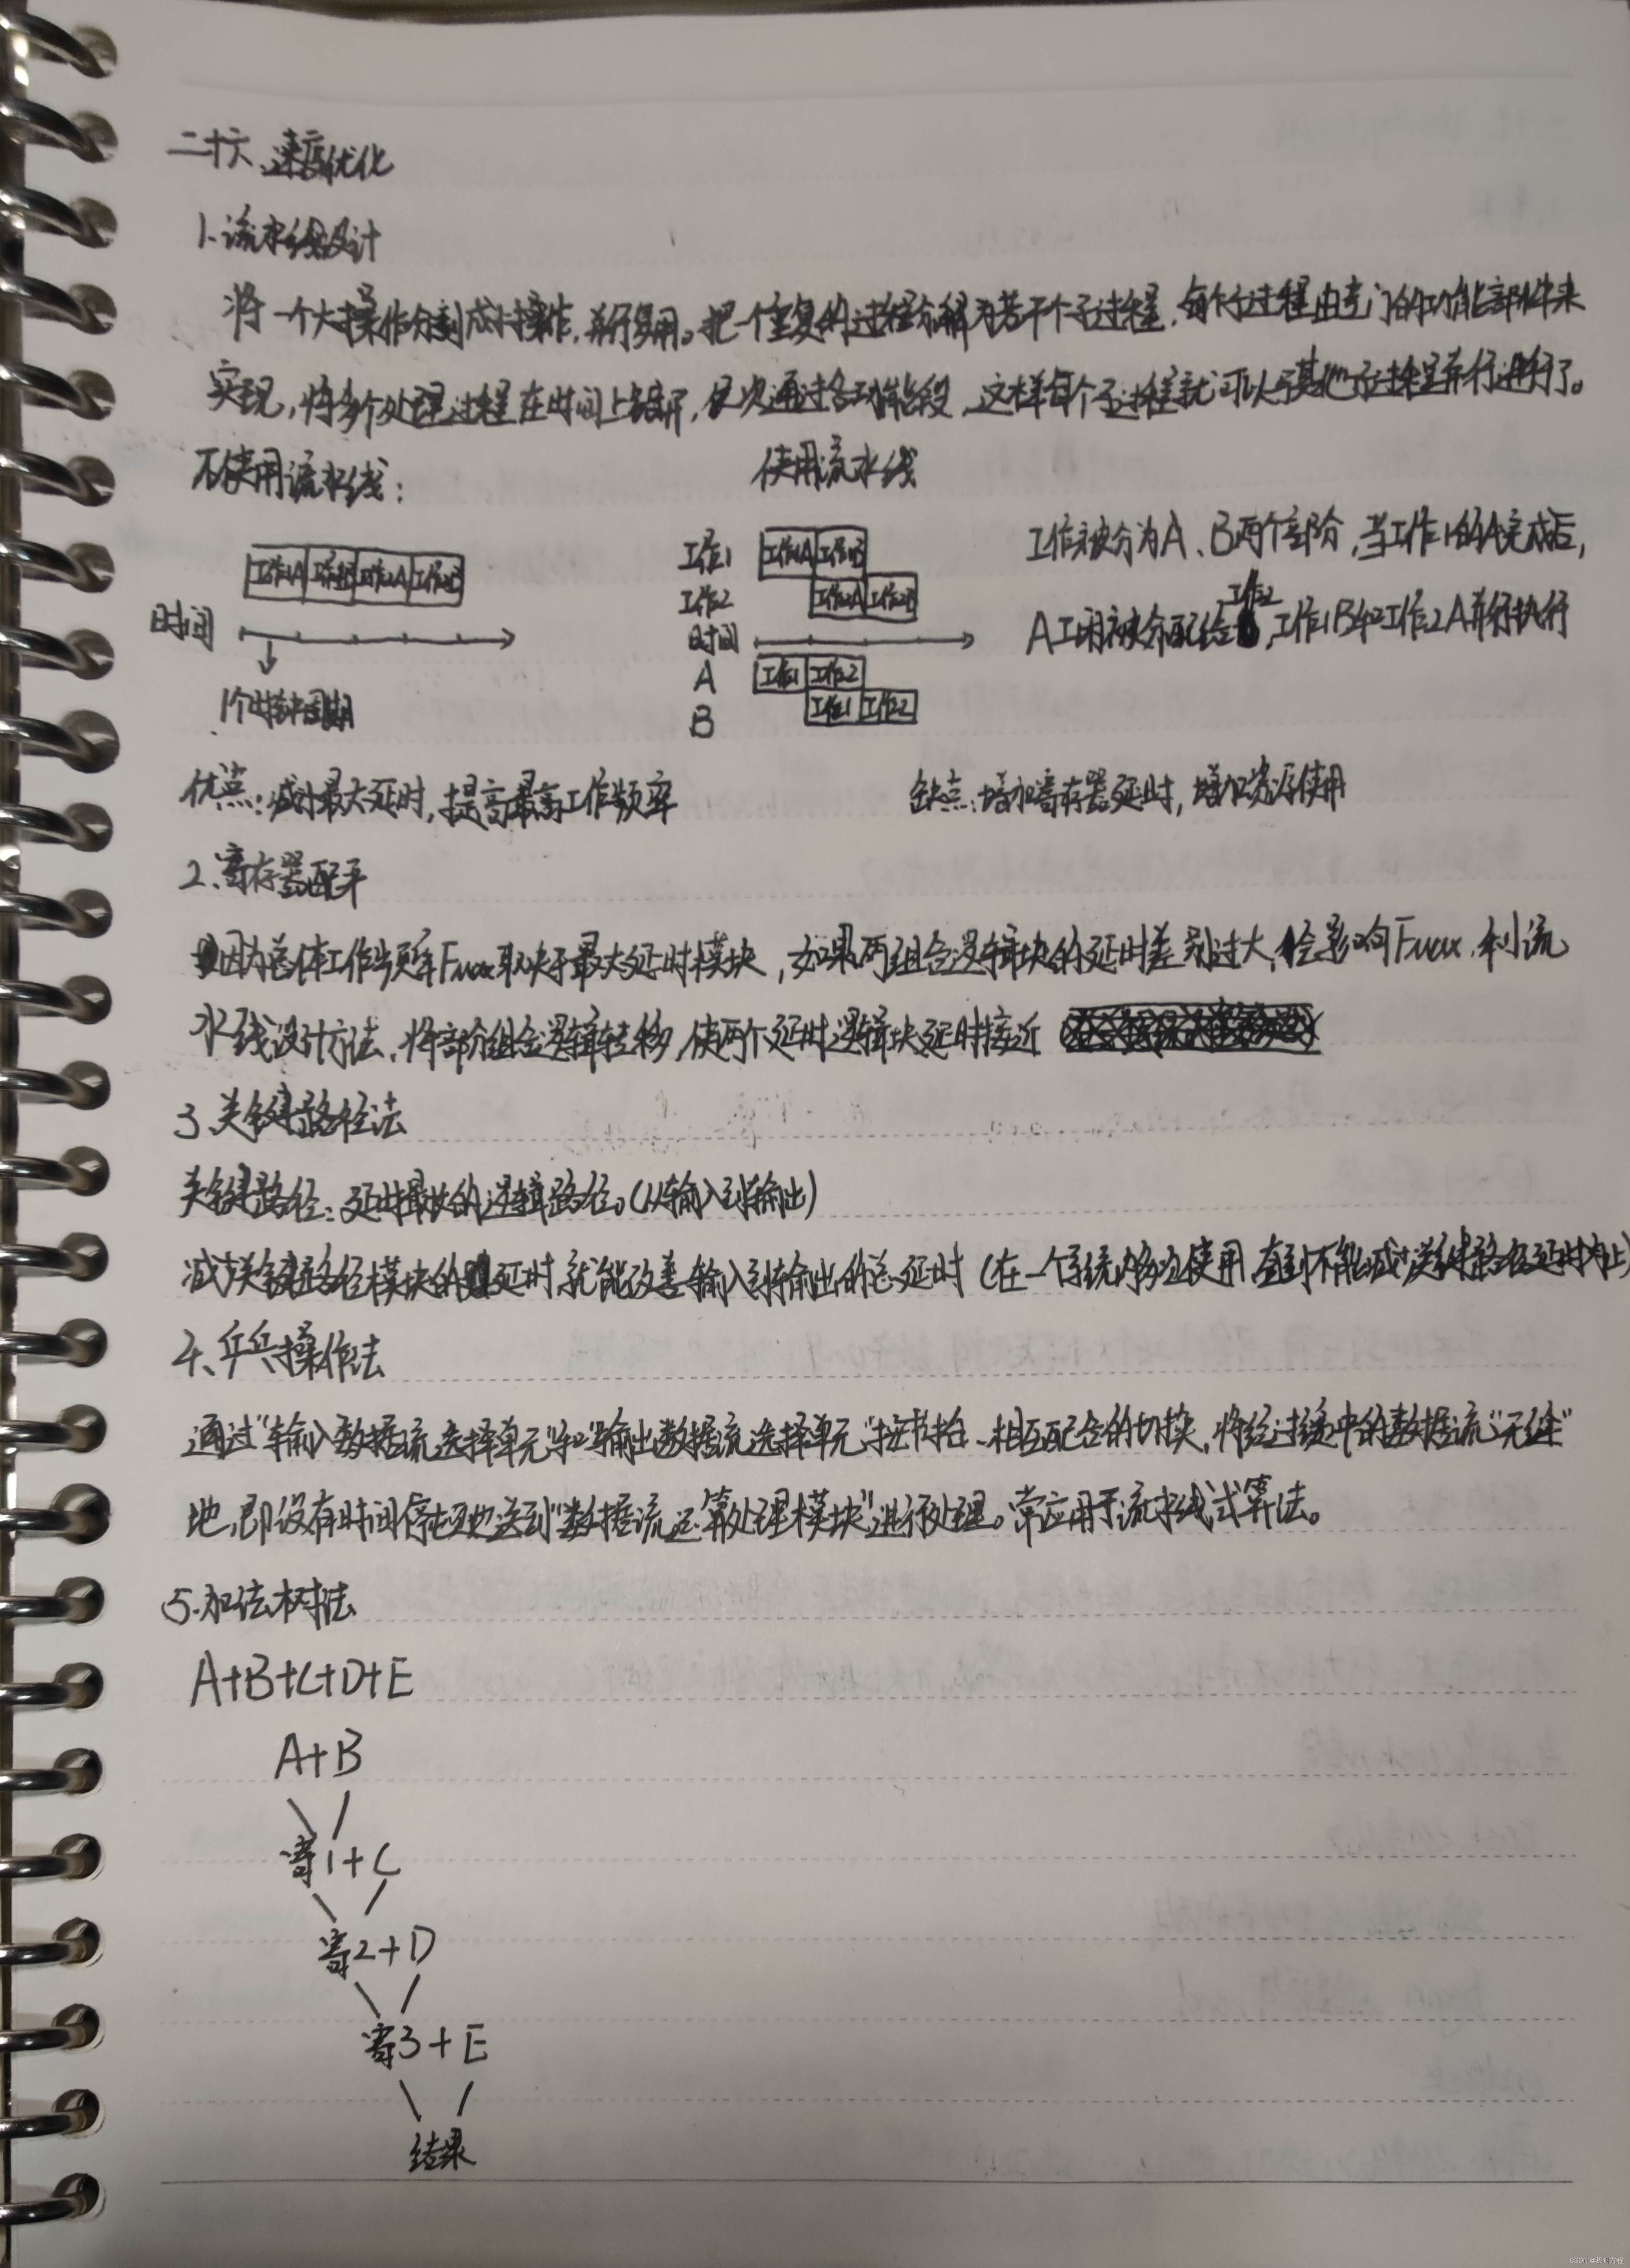 二十六、速度优化
1.流水线设计
将一个大操作分割成小操作，并行复用。把一个重复的过程分解为若干个子过程，每个子过程由专门的功能部件来
实现，将多个处理过程在时间上错开，依次通过各功能段，这样每个子过程就可以与其他子过程并行进行了。
不使用流水线：
使用流水线
工作1A 工作1B 工作2A 工作2B
时间
1个时钟周期
工作1 工作1A 工作1B
工作2 工作2A 工作2B
时间
A 工作1 工作2
B 工作1 工作2
工作被分为A、B两个部分，当工作1的A完成后，
A工作被分配给工作2，工作1B和工作2A并行执行
优点：减小最大延时，提高最高工作频率
缺点：增加寄存器延时，增加资源使用
2、寄存器配平
因为总体工作频率Fmax取决于最大延时模块，如果两组合逻辑块的延时差别过大，会影响Fmax，利流
水线设计方法，将部分组合逻辑转移，使两个延时逻辑块延时接近
3、关键路径法
关键路径：延时最长的逻辑路径。(从输入到输出)
减少关键路径模块的延时就能改善输入到输出的总延时（在一个系统内多次使用，直到不能减少关键路径延时为止）
4、乒乓操作法
通过“输入数据流选择单元”和“输出数据流选择单元”按节拍、相互配合的切换，将经过缓冲的数据流“无缝”
地，即没有时间停顿地送到“数据流运算处理模块”进行处理。常应用于流水线式算法。
5.加法树法
A+B+C+D+E
A+B
寄1+C
寄2+D
寄3+E
结果